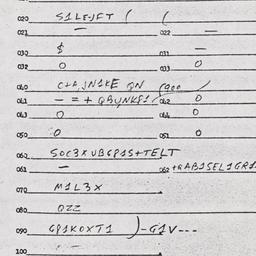 020 S1LEJFT ( (
021 — 022 —
030 $ 031 —
032 0 033 0
040
041 — = + 042 0
043 0 044 0
050 0 051 0
060 SOC3XUBGP1S+TELT
061 — 062 +QAB1SEL1GR1
070 M1L3X
080 OZZ
090 GP1KOXT1 )-G1V---
100